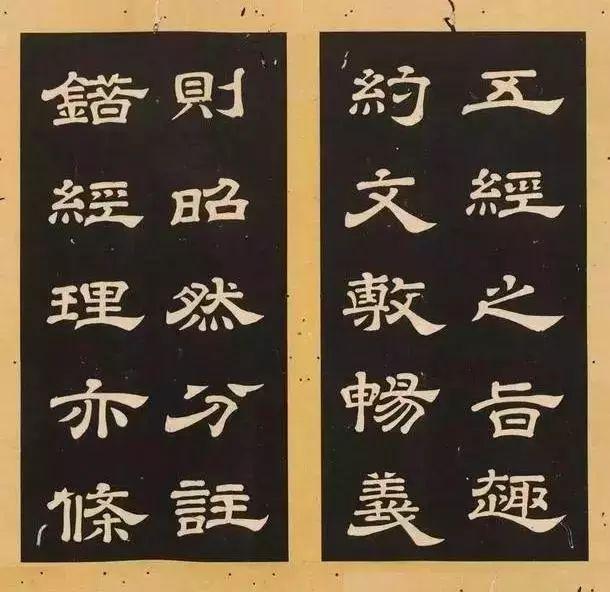 五經之旨趣
約文敷暢義
則昭然分註
錯經理亦條